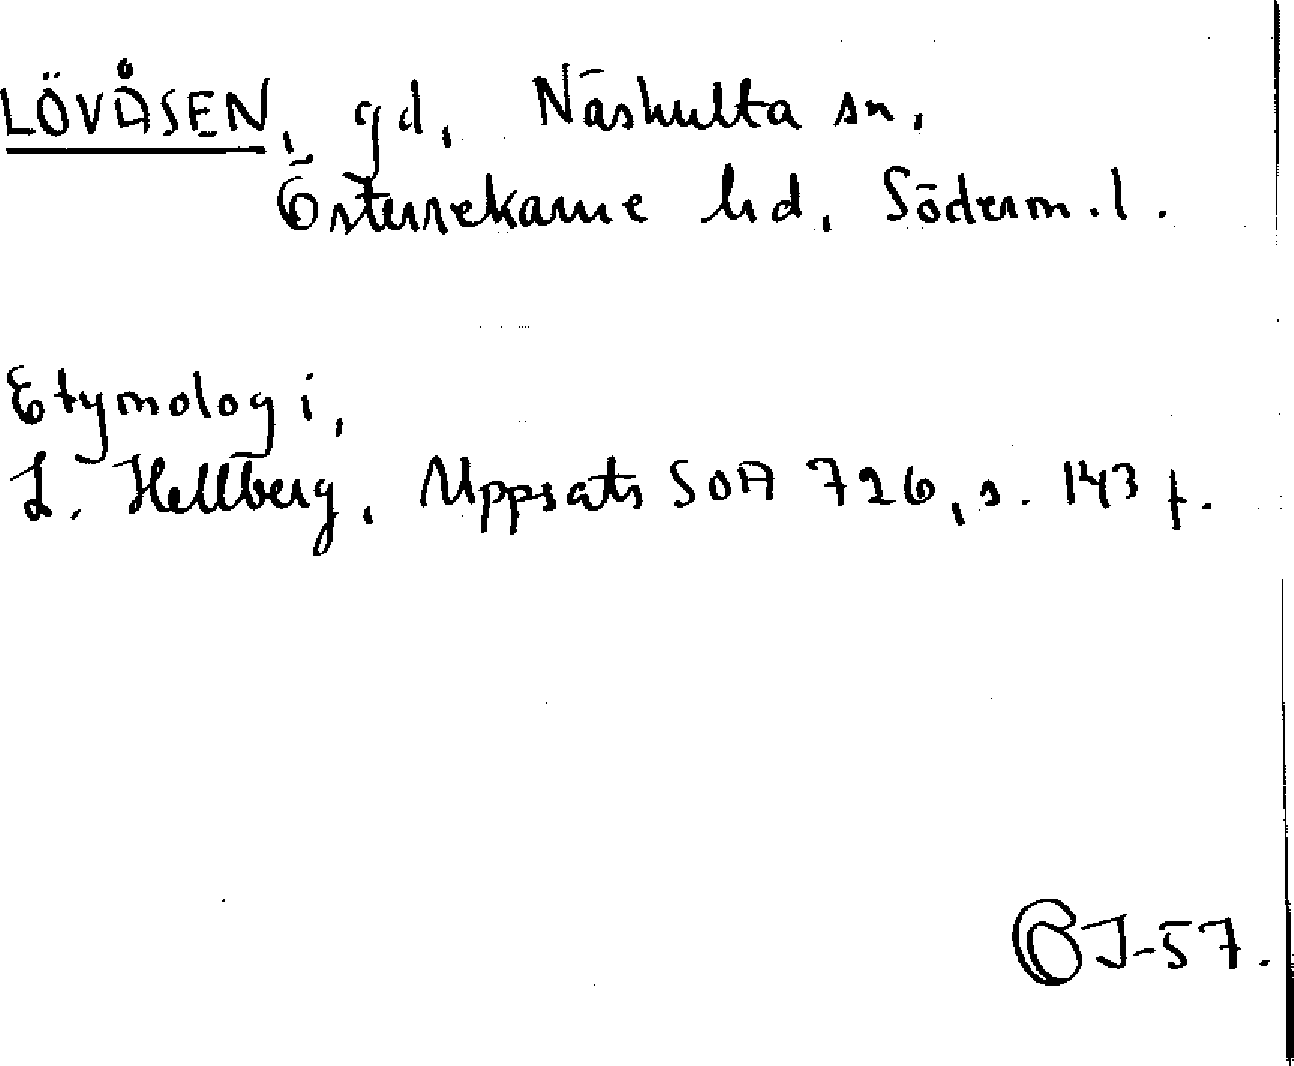 LÖVÅSEN, gd, Näshulta sn,
Österrekarne hd, Söderm.l.
Etymologi,
L. Hellberg, Uppsats SOA 726, s. 143 f.
J-57.